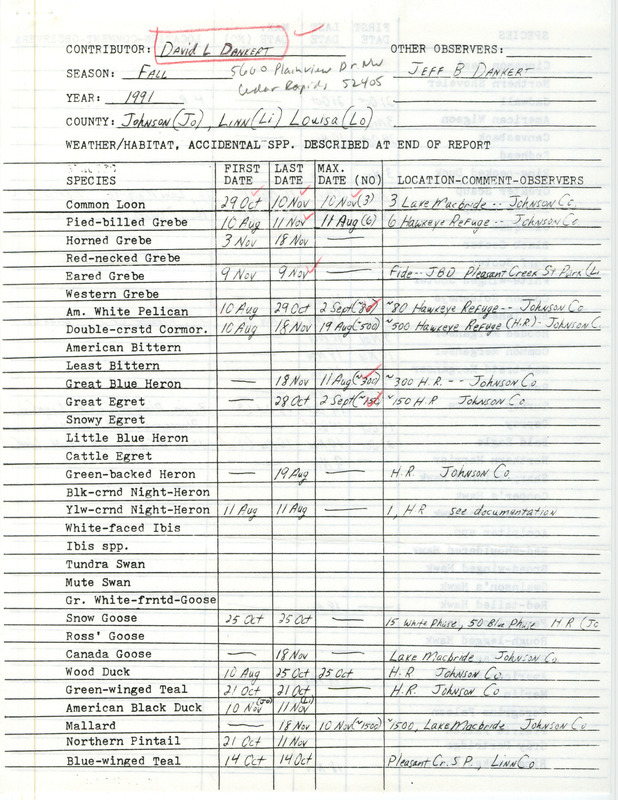 CONTRIBUTOR: David L Dankert OTHER OBSERVERS:
SEASON: Fall 5600 Plainview Dr NW Jeff B Dankert
Cedar Rapids 52405
YEAR: 1991
COUNTY: Johnson (Jo), Linn (Li) Louisa (Lo)
WEATHER/HABITAT, ACCIDENTAL SPP. DESCRIBED AT END OF REPORT
FIRST LAST MAX.
SPECIES DATE DATE DATE (NO) LOCATION-COMMENT-OBSERVERS
Common Loon 29 Oct 10 Nov 10 Nov (3) 3 Lake Macbride -- Johnson Co.
Pied-billed Grebe 10 Aug 11 Nov 11 Aug (6) 6 Hawkeye Refuge -- Johnson Co.
Horned Grebe 3 Nov 18 Nov
Red-necked Grebe
Eared Grebe 9 Nov 9 Nov — Fide -- JBD Pleasant Creek St Park (Li
Western Grebe
Am. White Pelican 10 Aug 29 Oct 2 Sept (~80) ~80 Hawkeye Refuge -- Johnson Co
Double-crstd Cormor. 10 Aug 18 Nov 19 Aug (500) ~500 Hawkeye Refuge (H.R) - Johnson C.
American Bittern
Least Bittern
Great Blue Heron — 18 Nov 11 Aug (~300) ~300 H.R. -- Johnson Co
Great Egret — 28 Oct 2 Sept (~150) ~150 H.R Johnson Co.
Snowy Egret
Little Blue Heron
Cattle Egret
Green-backed Heron — 19 Aug — H.R. Johnson Co
Blk-crnd Night-Heron
Ylw-crnd Night-Heron 11 Aug 11 Aug — 1, H R see documentation
White-faced Ibis
Ibis spp.
Tundra Swan
Mute Swan
Gr. White-frntd-Goose
Snow Goose 25 Oct 25 Oct — 15 White Phase, 50 Blue Phase H R (Jo
Ross' Goose
Canada Goose — 18 Nov Lake Macbride, Johnson Co
Wood Duck 10 Aug 25 Oct 25 Oct H.R Johnson Co.
Green-winged Teal 21 Oct 21 Oct — H.R. Johnson Co
American Black Duck 10 Nov (Jo) 11 Nov (Li)
Mallard — 18 Nov 10 Nov (~1500) ~1500, Lake Macbride Johnson Co
Northern Pintail 21 Oct 11 Nov
Blue-winged Teal 14 Oct 14 Oct Pleasant Cr. S P., Linn Co